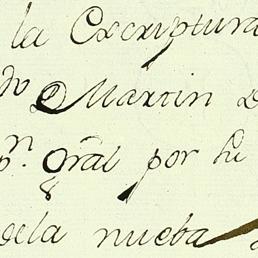 la Excriptura
Dⁿ Martin D
pⁿ. Gral por su
dela nueba